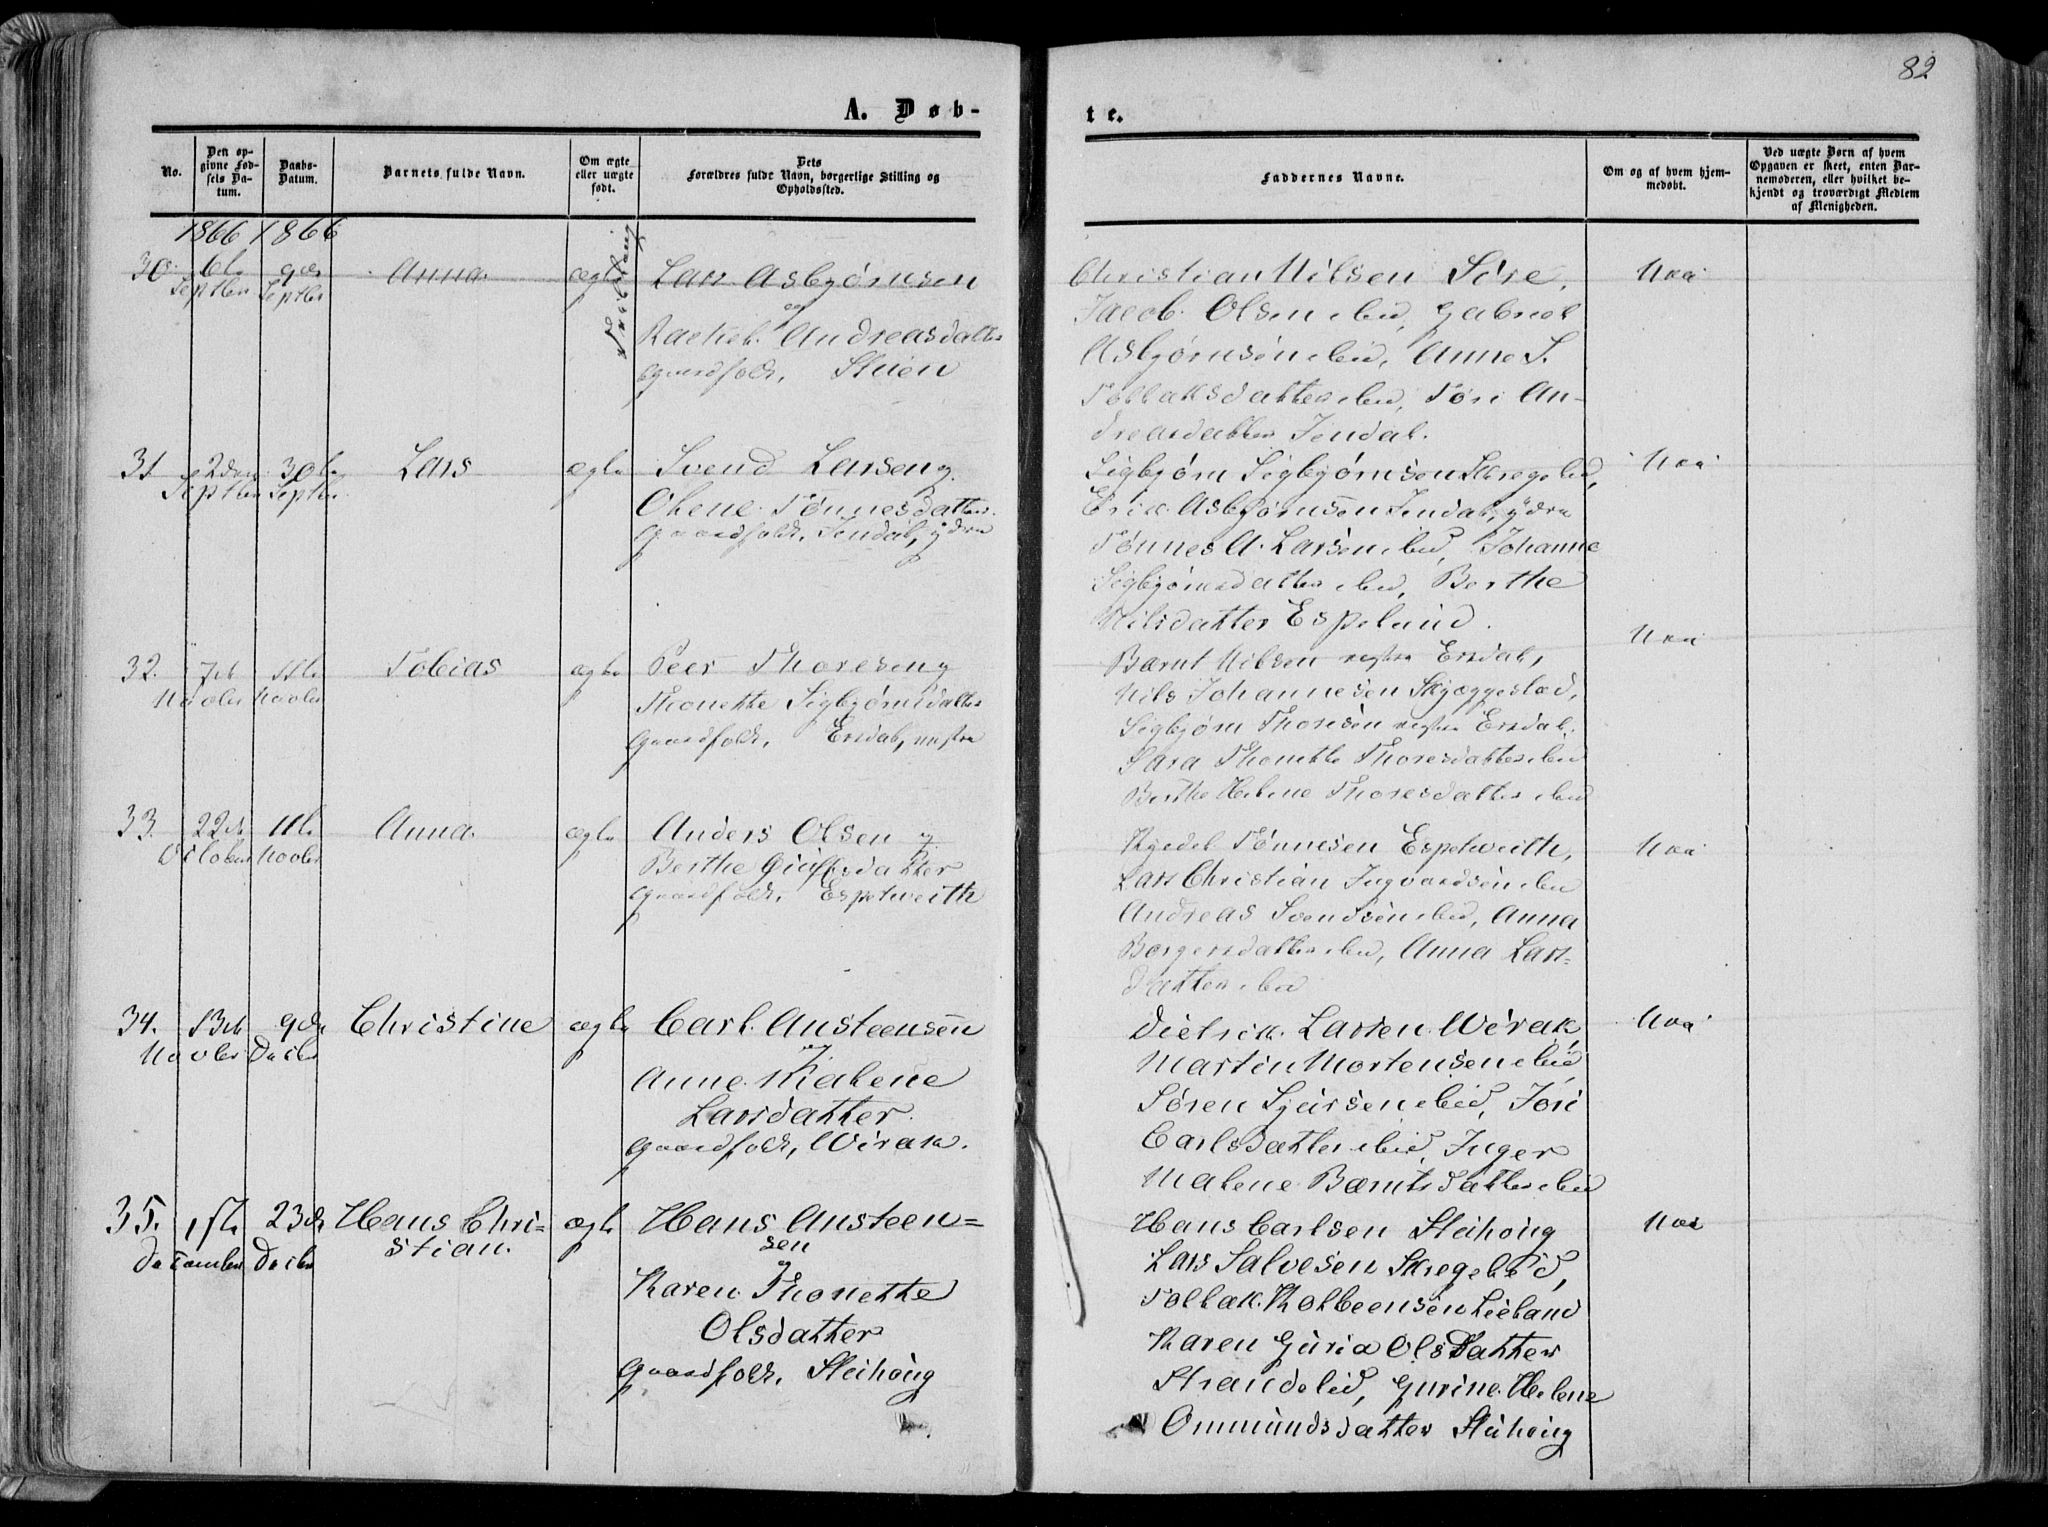 82
A. Døb-
te.
No.
Den op-
givne Fød-
sels Da-
tum.
Daabs-
Datum.
Barnets fulde Navn.
Om ægte
eller uægte
født.
Dets
Forældres fulde Navn, borgerlige Stilling og
Opholdssted.
Faddernes Navne.
Om og af hvem hjem-
medøbt.
Ved uægte Børn af hvem
Opgaven er skeet, enten Bar-
nemoderen, eller hvilket be-
kjendt og troværdigt Medlem
af Menigheden.
1866 1866
30. 6te 9de Anna ægte Lars Asbjørnsen
Septber Septber
og
Rachel Andreasdatter
Gaardfolk, Stuen
Christian Nilsen Søre,
Jacob Olsen ibid, Gabriel
Asbjørnsen ibid, Anne S.
Tollaksdatter ibid, Tøri An-
dreasdatter Jendal.
Nei
31 2den 30te Lars ægte Svend Larsen og
Septber Septbr
Olene Tønnesdatter
Gaardfolk, Jendal, ydre
Sigbjørn Sigbjørnsen Skregelid,
Erik Asbjørnsen Jendal, ydre
Tønnes A. Larsen ibid, Johanne
Sigbjørnsdatter ibid, Berthe
Nilsdatter Espeland.
Nei
32. 7de 11te Tobias ægte Peer Thoresen og
Novber Novber
Thonette Sigbjørnsdatter
Gaardfolk, Ersdal, vestre
Bærnt Nilsen vestre Ersdal,
Nils Johannesen Skjæggestad,
Sigbjørn Thoresen vestre Ersdal.
Sara Thonette Thoresdatter ibid
Berthe Helene Thoresdatter ibid
Nei
33. 22de 11te Anna ægte Anders Olsen og
October Novber
Berthe datter
Gaardfolk, Espetweith
Kjedel Tønnesen Espetweith,
Lars Christian Ingvardsen ibid
Andreas Svendsen ibid, Anna
Børgersdatter ibid, Anna Lars-
datter ibid
Nei
34. 13de 9de Christine ægte Carl Ansteensen
Novber Decbr
og
Anne Malene
Larsdatter
Gaardfolk, Wirak.
Dietrik Larsen Wirak,
Martin Mortensen ibid
Søren Sjursen ibid, Jøri
Carlsdatter ibid, Inger
Malene Bærntsdatter ibid
Nei
35. 1ste 23de Hans Chri- ægte Hans Ansteen-
December Decbr stian. sen
og
Karen Thonette
Olsdatter
Gaardfolk, Steihoug
Hans Carlsen Steihoug
Lars Salvesen Skregelid,
Tollak Kolbeensen Lieland
Karen Guria Olsdatter
Strandelid, Gurine Helene
Ommundsdatter Steihoug
Nei